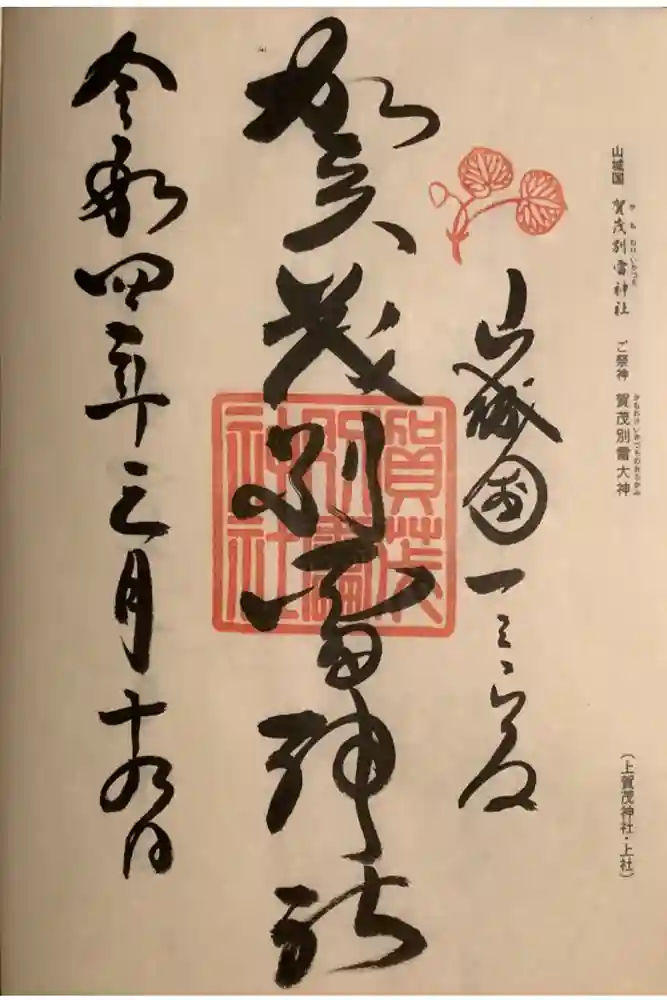 山城国 賀茂別雷神社 ご祭神 賀茂別雷大神
かもわけいかづち
かもわけいかづちのおおかみ
(上賀茂神社・上社)
山城國一之宮
賀茂別雷神社
賀茂別雷神社
令和四年三月十九日